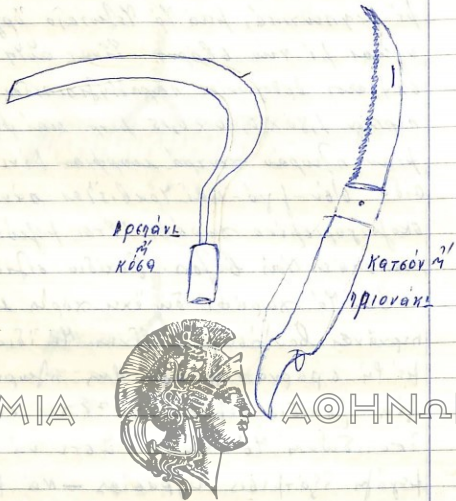 Δρεπάνι
ή
κόσα
Κατσόν ή
πριονάκι
ΜΙΑ ΑΘΗΝΩΝ